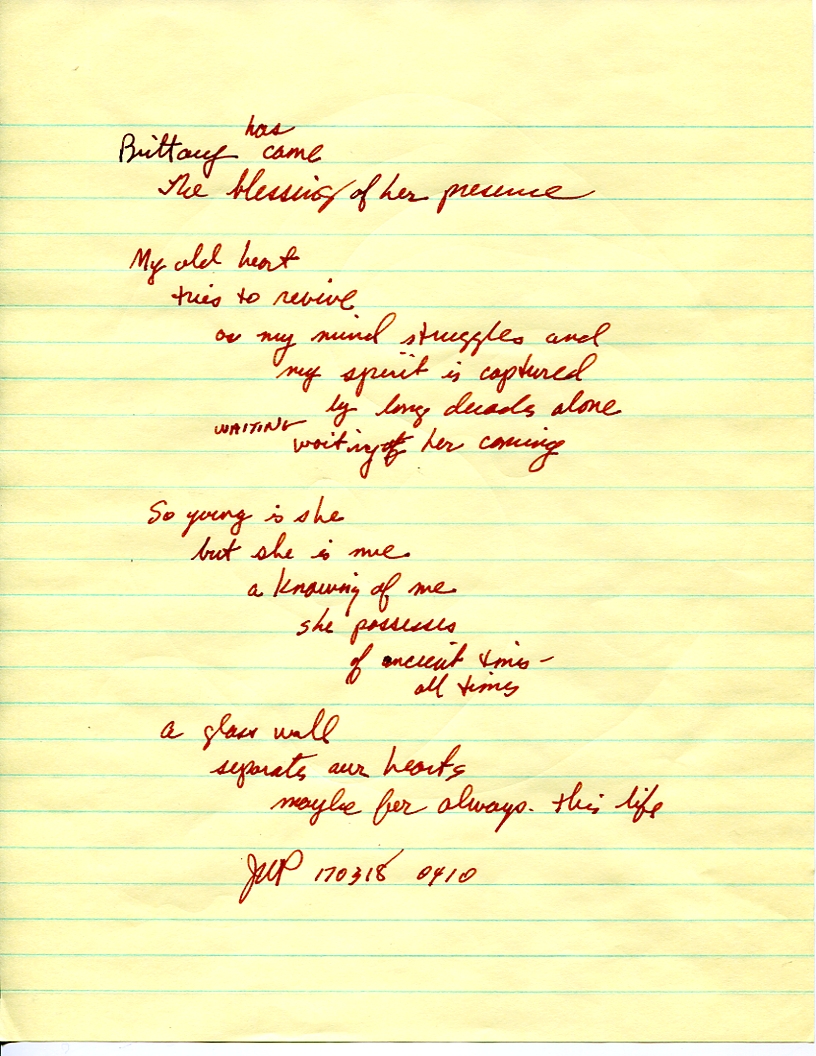 has
Brittany came
The blessing of her presence
My old heart
tries to revive
as my mind struggles and
my spirit is captured
by long decades alone
WAITING
waiting of her coming
So young is she
but she is me
a knowing of me
she possesses
of ancient times –
all times
a glass wall
separates our hearts
maybe for always. this life
JWP 170318 0410